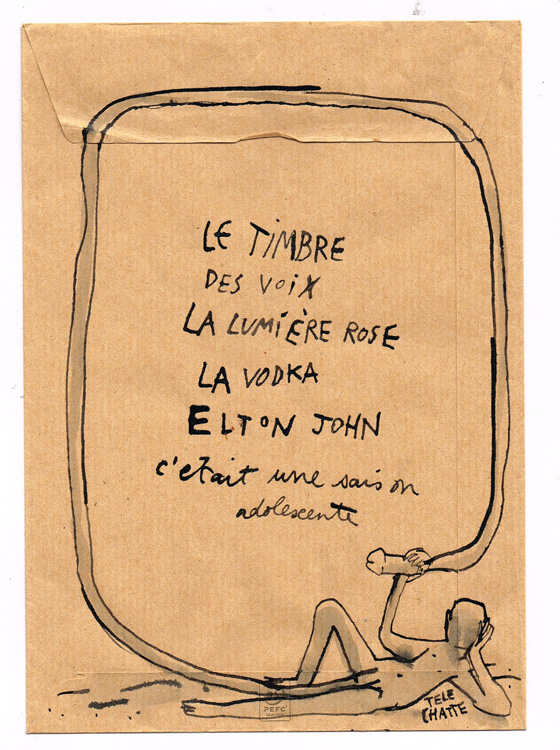 LE TIMBRE
DES VOIX
LA LUMIÈRE ROSE
LA VODKA
ELTON JOHN
c'etait une saison
adolescente
TELE
CHATTE
PEFC